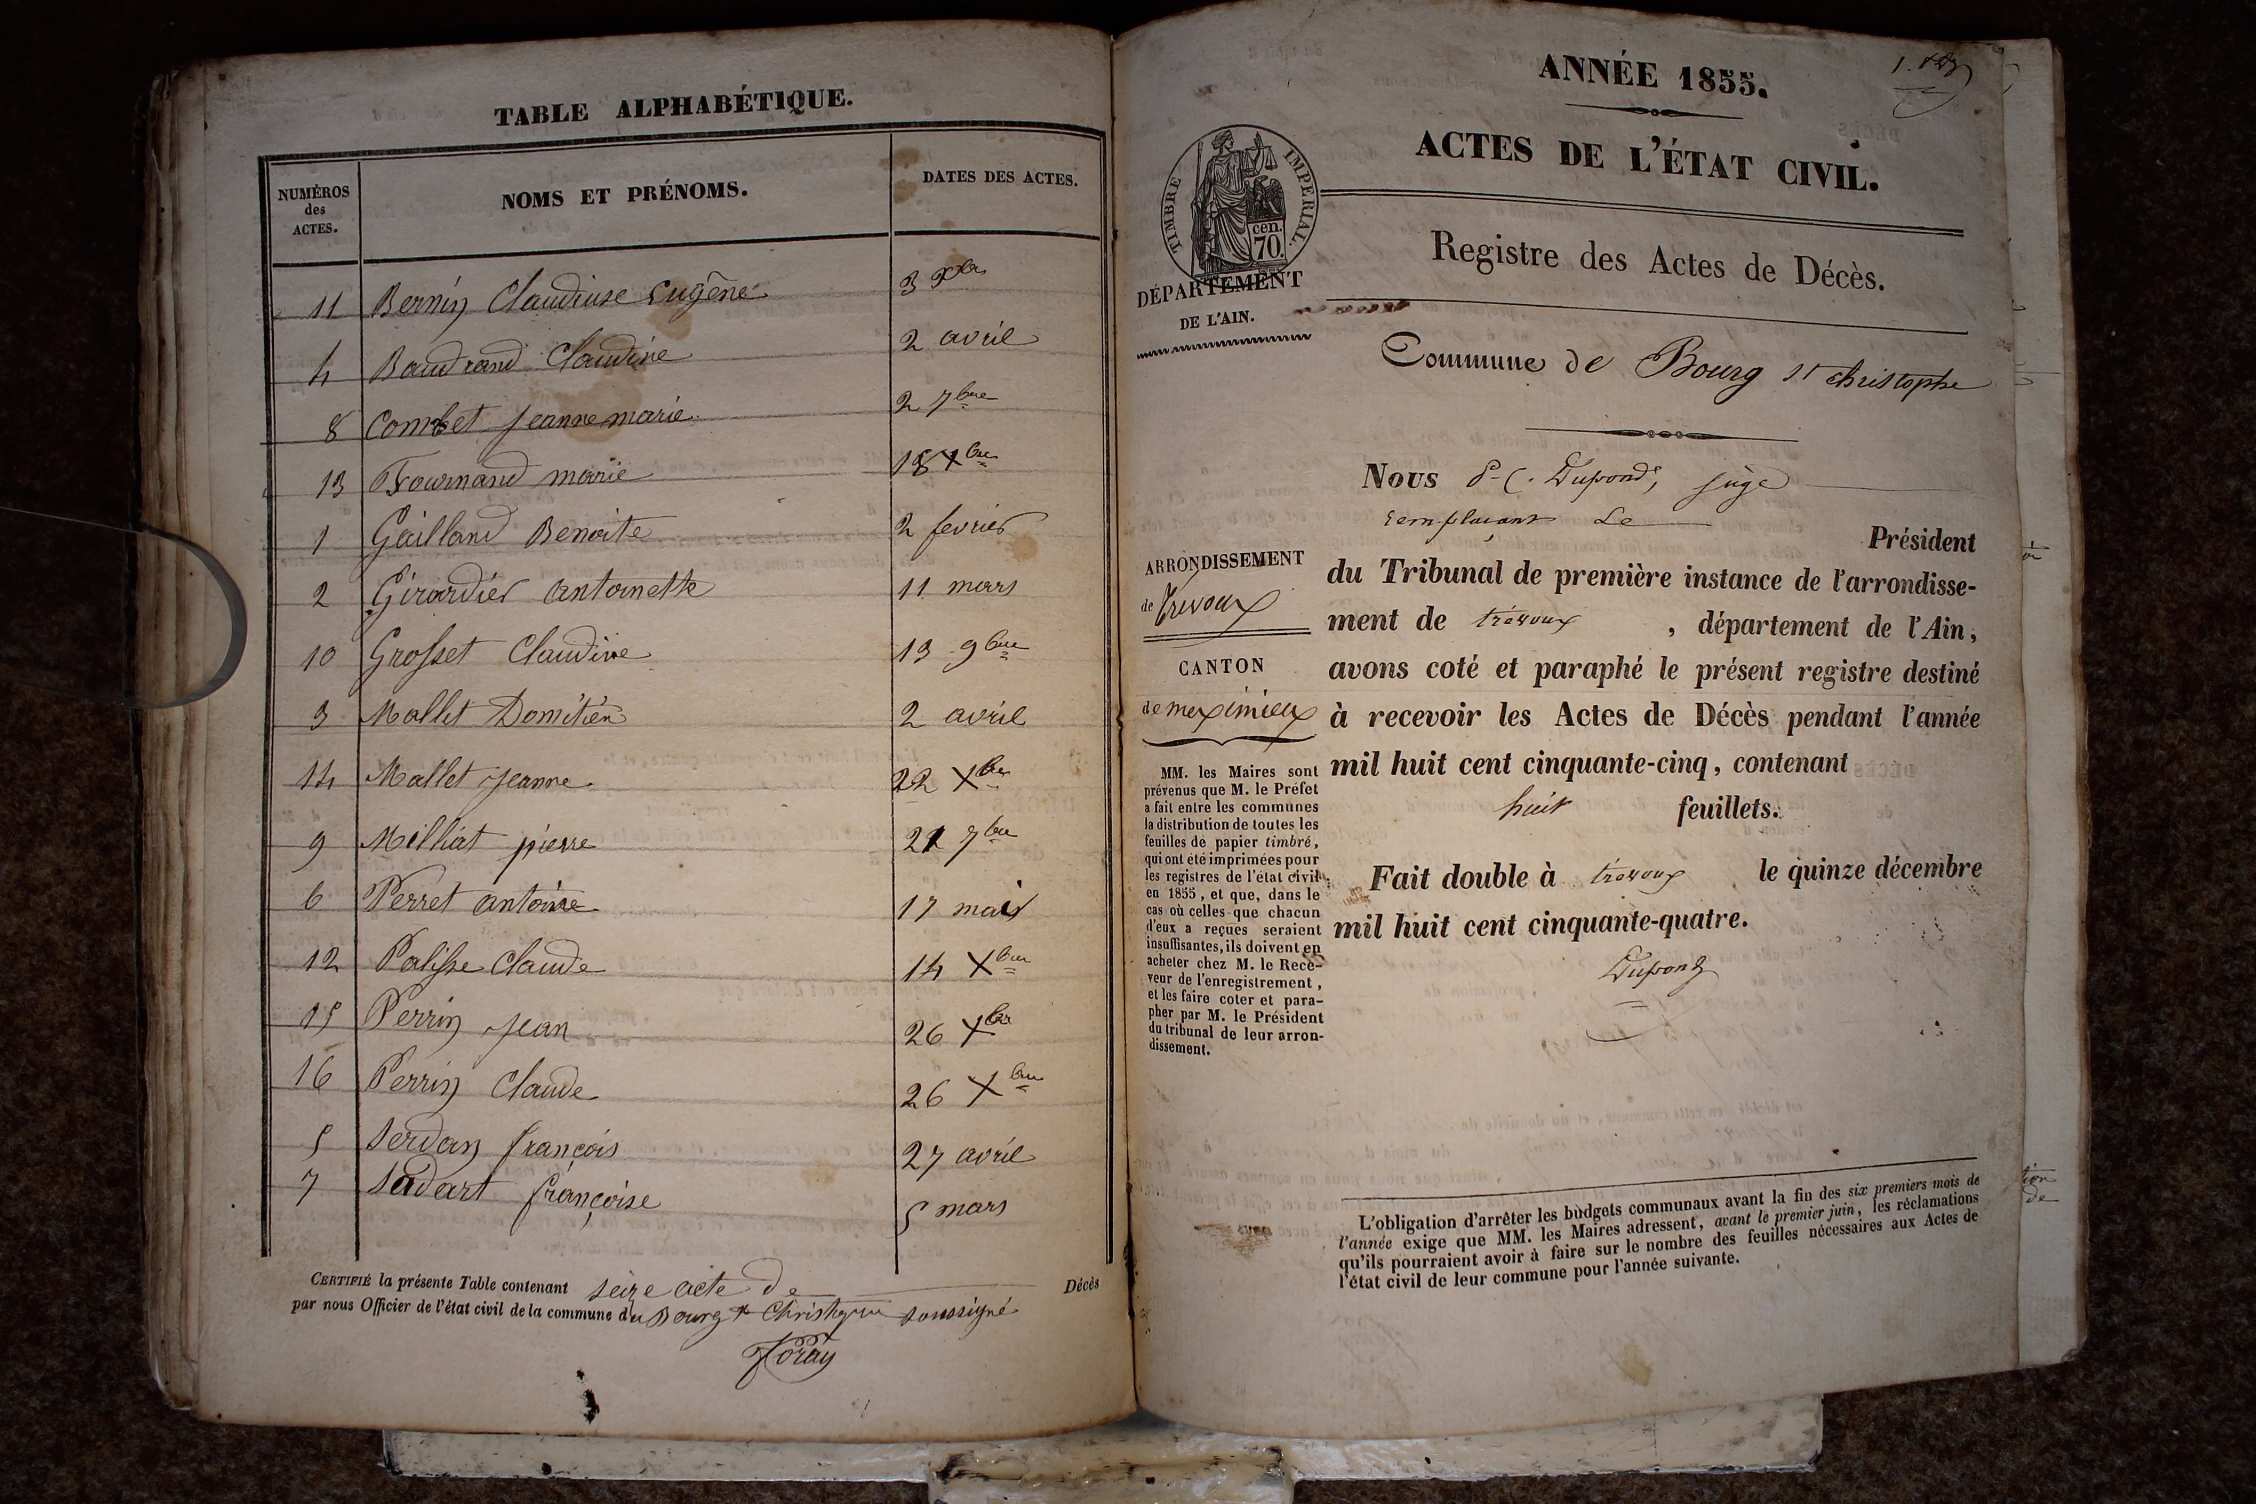 TABLE ALPHABÉTIQUE.
NUMÉROS des ACTES. NOMS ET PRÉNOMS. DATES DES ACTES.
11 Bernin Claudiuse Eugêne 3 Xbre
4 Baudrand Claudine 2 avril
8 Combet jeanne marie 2 7bre
13 Fournand marie 18 Xbre
1 Gailland Benoite 2 fevrier
2 Girardier antoinette 11 mars
10 Grosset Claudine 13 9bre
3 Mallet Domitien 2 avril
14 Mallet jeanne 22 Xbre
9 Milliat pierre 21 7bre
6 Perret antoine 17 mai
12 Palisse Claude 14 Xbre
15 Perrin jean 26 Xbre
16 Perrin Claude 26 Xbre
5 Serdan françois 27 avril
7 Sadart françoise 5 mars
CERTIFIÉ la présente Table contenant seize acte de Décès
par nous Officier de l'état civil de la commune du Bourg St Christophe soussigné
ANNÉE 1855.
ACTES DE L'ÉTAT CIVIL.
TIMBRE IMPERIAL.
cen.
70.
DÉPARTEMENT
DE L'AIN.
Registre des Actes de Décès.
Commune de Bourg St christophe
Nous P. C. Dupond, juge
remplaçant Le
Président
ARRONDISSEMENT
de Trevoux
CANTON
de meximieux
du Tribunal de première instance de l'arrondisse-
ment de trévoux, département de l'Ain,
avons coté et paraphé le présent registre destiné
à recevoir les Actes de Décès pendant l'année
mil huit cent cinquante-cinq, contenant
huit feuillets.
Fait double à trévoux le quinze décembre
mil huit cent cinquante-quatre.
Dupond
MM. les Maires sont
prévenus que M. le Préfet
a fait entre les communes
la distribution de toutes les
feuilles de papier timbré,
qui ont été imprimées pour
les registres de l'état civil
en 1855, et que, dans le
cas où celles que chacun
d'eux a reçues seraient
insuffisantes, ils doivent en
acheter chez M. le Rece-
veur de l'enregistrement,
et les faire coter et para-
pher par M. le Président
du tribunal de leur arron-
dissement.
L'obligation d'arrêter les budgets communaux avant la fin des six premiers mois de
l'année exige que MM. les Maires adressent, avant le premier juin, les réclamations
qu'ils pourraient avoir à faire sur le nombre des feuilles nécessaires aux Actes de
l'état civil de leur commune pour l'année suivante.